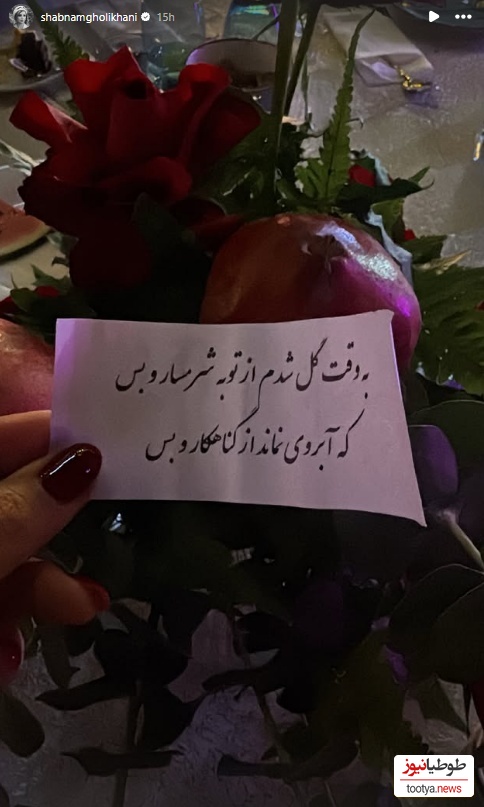 shabnamgholikhani 15h
به وقت گل شدم از توبه شرمسار و بس
که آبروی نماند از گناهکار و بس
طوطیانیوز
tootya.news